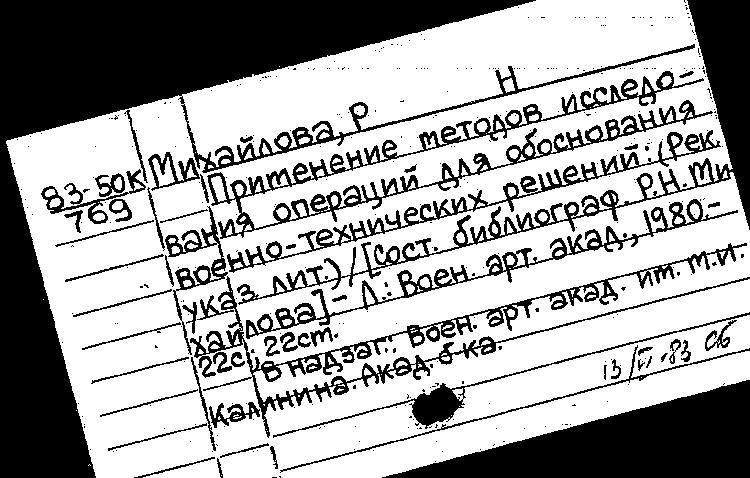 83-50К Михайлова, Р Н
769
Применение методов исследо-
вания операций для обоснования
военно-технических решений: (Рек.
указ. лит.) / [Сост. библиограф. Р.Н. Ми
хайлова] - Л.: Воен. арт. акад., 1980.-
22с.; 22см.
В надзаг.: Воен. арт. акад. им. М.И.
Калинина. Акад. б-ка.
13/VI-83 Сб